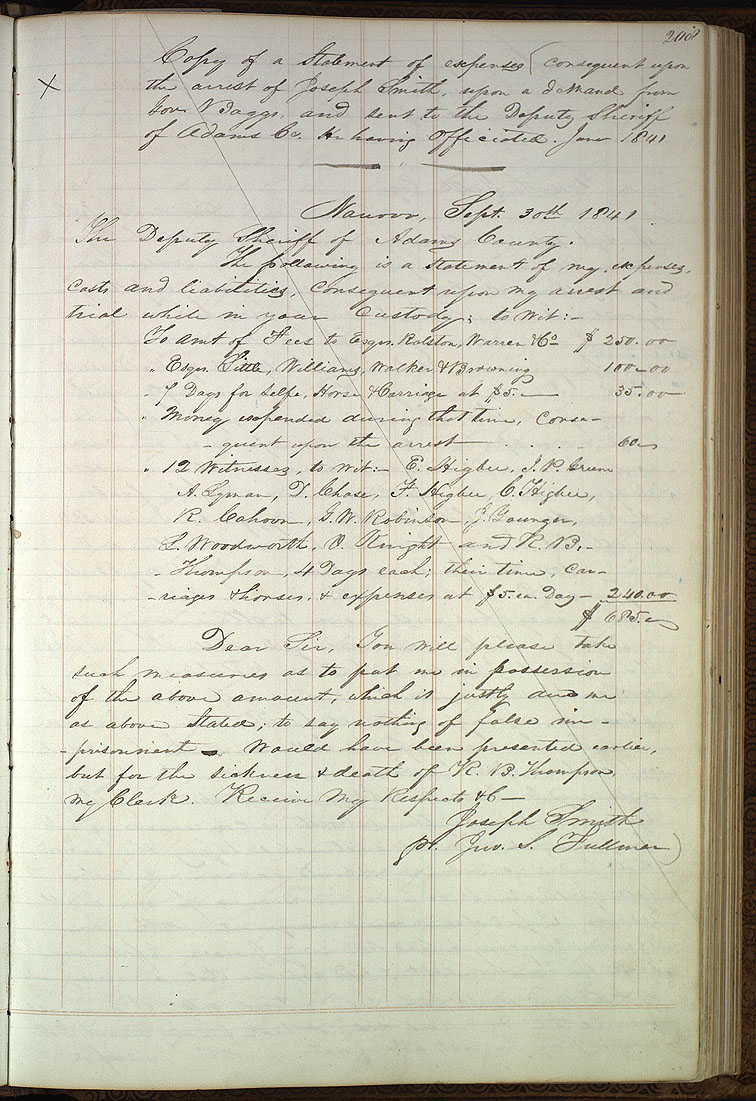 208
Copy of a Statement of expenses (consequent upon
X the arrest of Joseph Smith, upon a demand from
Gov. Boggs, and sent to the Deputy Sheriff
of Adams Co. He having Officiated. June 1841
Nauvoo, Sept. 30th 1841
The Deputy Sheriff of Adams County.
The following is a statement of my expenses,
costs and liabilities, consequent upon my arrest and
trial while in your Custody; to Wit:-
To amt of Fees to Esqrs. Ralston, Warren & Co $ 250.00
" Esqrs. Little, Williams, Walker & Browning 100.00
" 7 Days for Selfe, Horse & Carriage at $5.- 35.00
" Money expended during that time, Conse-
- quent upon the arrest 60
" 12 Witnesses, to Wit:- E. Higbee, J. P. Green
A. Lyman, D. Chase, F. Higbee, C. Higbee,
R. Cahoon, G. W. Robinson, J. Younger,
S. Woodworth, V. Knight and R. B.-
- Thompson, 4 Days each; their time, Car-
- riages & horses, & expenses at $5. ea. Day - 240.00
$ 685.
Dear Sir, You will please take
such measures as to put me in possession
of the above amount, which is justly due me
as above Stated; to say nothing of false im-
- prisonment - Would have been presented earlier,
but for the sickness & death of R. B. Thompson
my Clerk. Receive My Respects &C -
Joseph Smith
pr. Jno. S. Fullmer)